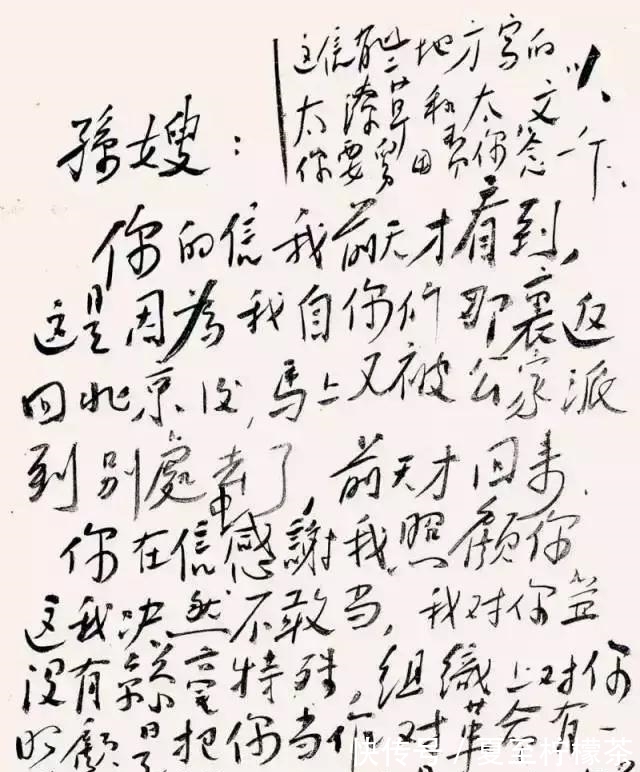 这信有些地方写的
太潦草和太文
你要舅田芬你念一下
孫嫂：
你的信我前天才看到，
这是因為我自你们那裏返
回北京後，馬上又被公家派
到别處去了，前天才回来.
你在信中感謝我照顧你
这我决然不敢当，我对你並
没有
特殊，組織上对你
照顧是把你当作对革命有一
快传号 / 夏至柠檬茶